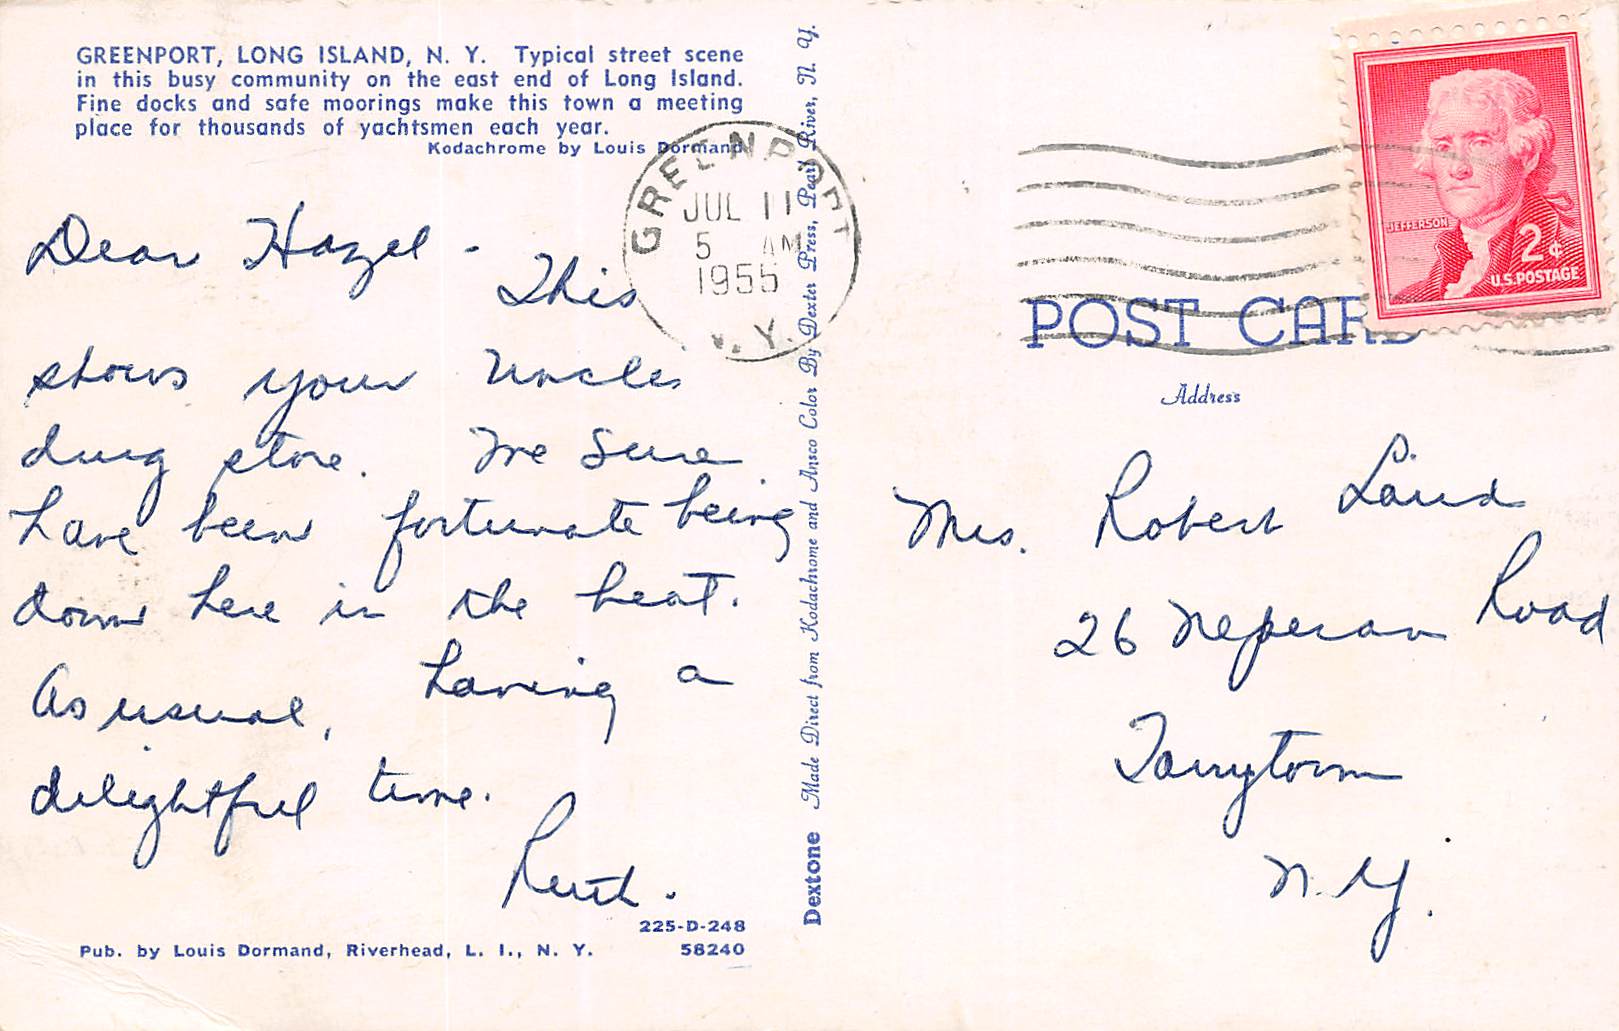 GREENPORT, LONG ISLAND, N. Y. Typical street scene
in this busy community on the east end of Long Island.
Fine docks and safe moorings make this town a meeting
place for thousands of yachtsmen each year.
Kodachrome by Louis Dormand
GREENPORT
JUL 11
5 AM
1955
N.Y.
Dear Hazel -
This
shows your Uncles
drug store. We sure
have been fortunate being
down here in the heat.
As usual, having a
delightful time.
Ruth.
225-D-248
Pub. by Louis Dormand, Riverhead, L. I., N. Y. 58240
Dextone Made Direct from Kodachrome and Ansco Color By Dexter Press, Pearl River, N. Y.
JEFFERSON
2¢
U.S. POSTAGE
POST CARD
Address
Mrs. Robert Laird
26 Neperan Road
Tarrytown
N.Y.